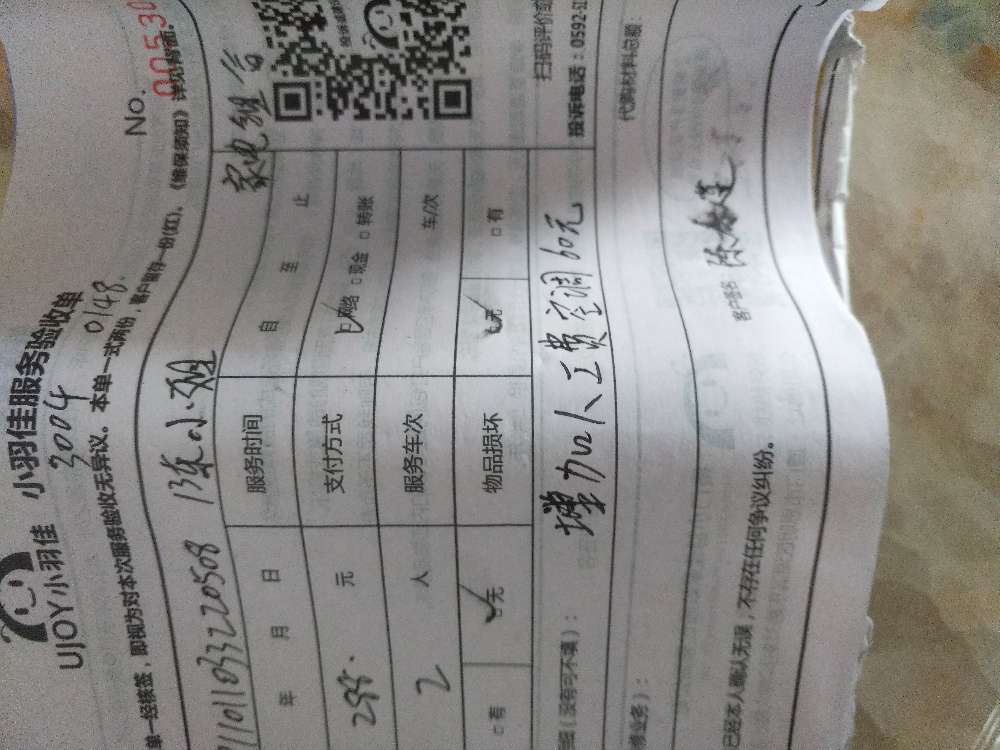 UJOY小羽佳 小羽佳服务验收单
No. 00530
3004 0148
单一经接签，即视为对本次服务验收无异议。本单一式两份，客户留存一份(红)。《维保须知》详见背面。
家电组合
年 月 日 服务时间 自 至 止
288. 元 支付方式 网络 □ 现金 □ 转账
2 人 服务车次 车/次
□ 有 无 物品损坏 无 □ 有
（没有可不填）： 增加人工费空调60元
扫码评价或
投诉电话：0592-
代购材料总额：
修业务）：
客户签名
已经本人确认无误，不存在任何争议纠纷。